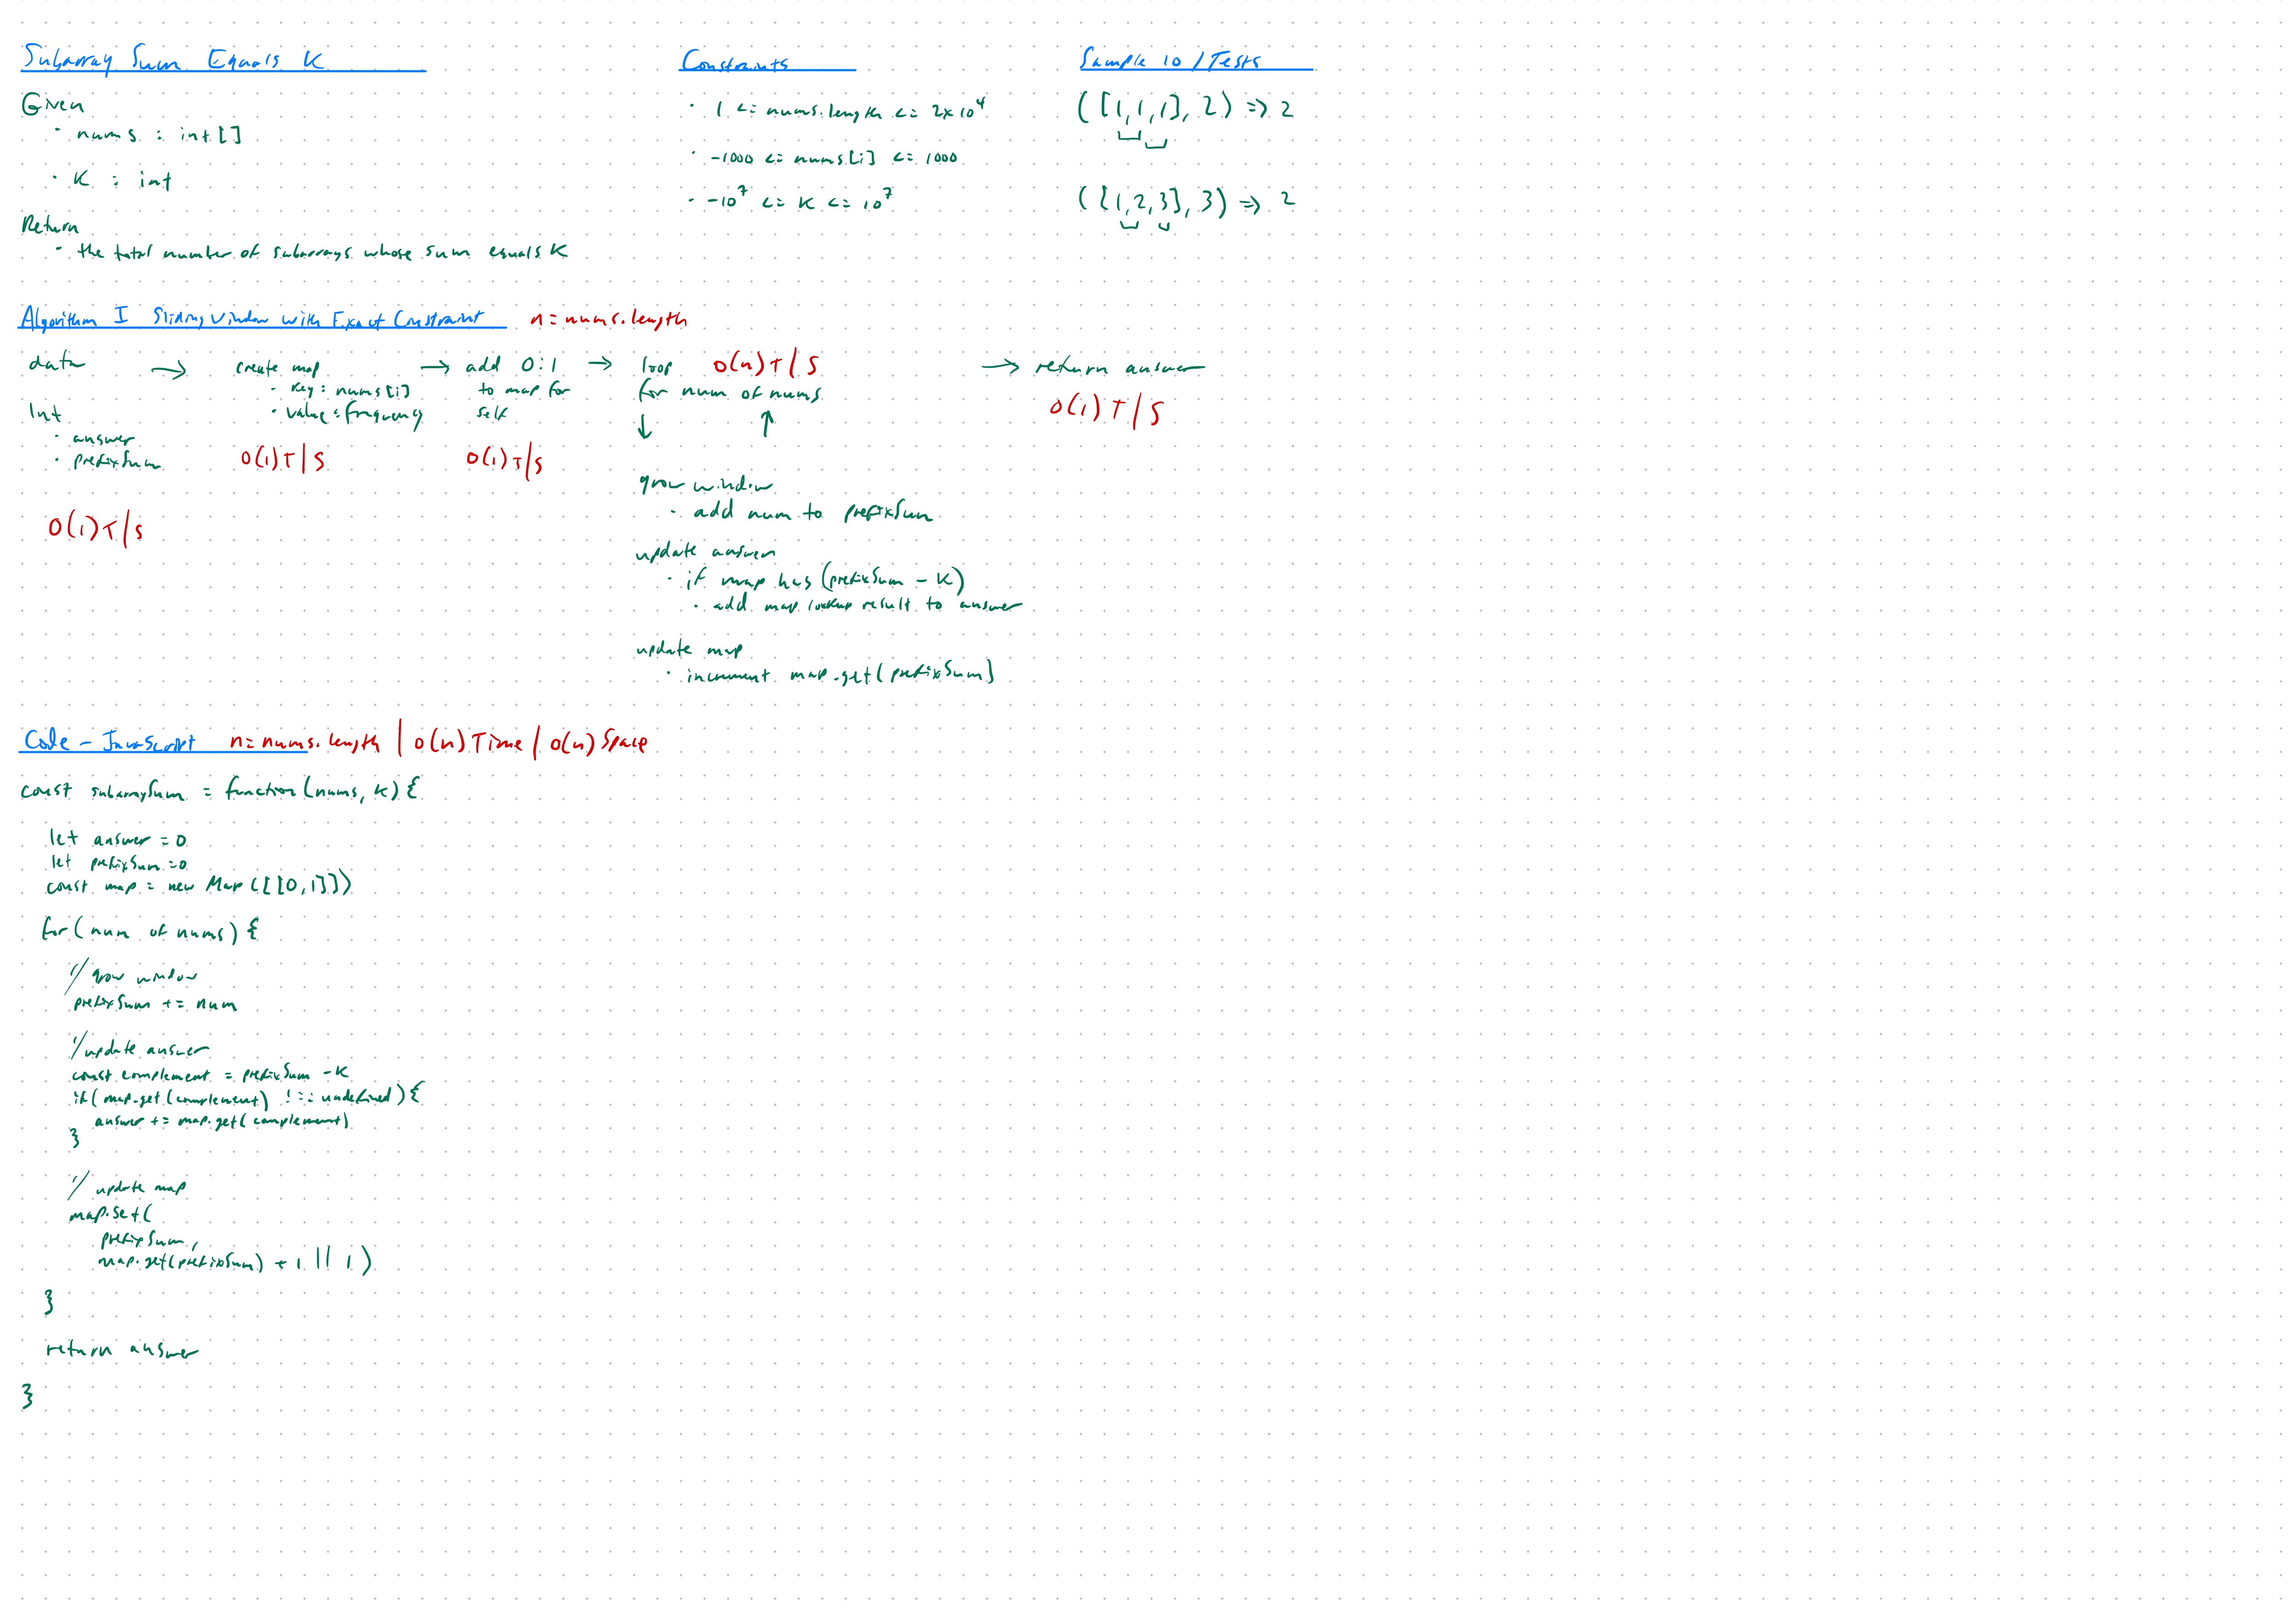 Subarray Sum Equals K
Given
· nums : int[]
· K : int
Return
· the total number of subarrays whose sum equals K
Constraints
· 1 <= nums.length <= 2x10^4
· -1000 <= nums[i] <= 1000
· -10^7 <= K <= 10^7
Sample IO / Tests
([1,1,1], 2) => 2
([1,2,3], 3) => 2
Algorithm I Sliding Window with Exact Constraint n = nums.length
data
Int
· answer
· prefixSum
O(1) T/S
→
create map
· key: nums[i]
· value: frequency
O(1) T | S
→
add 0:1
to map for
self
O(1) T/S
→
loop O(n) T / S
for num of nums
↓ ↑
grow window
· add num to prefixSum
update answer
· if map has (prefixSum - K)
· add map lookup result to answer
update map
· increment map.get(prefixSum)
→ return answer
O(1) T / S
Code - JavaScript n = nums.length | O(n) Time / O(n) Space
const subarraySum = function(nums, K) {
let answer = 0
let prefixSum = 0
const map = new Map([[0,1]])
for (num of nums) {
// grow window
prefixSum += num
// update answer
const complement = prefixSum - K
if (map.get(complement) !== undefined) {
answer += map.get(complement)
}
// update map
map.set(
prefixSum,
map.get(prefixSum) + 1 || 1)
}
return answer
}